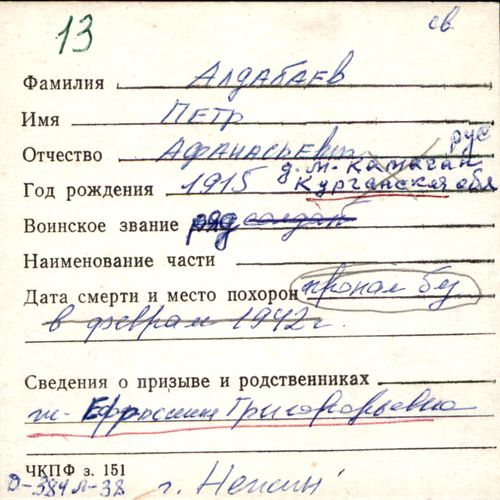 13
св
Фамилия Алдабаев
Имя Петр
рус
Отчество Афанасьевич
д. М-Камаган
Год рождения 1915 Курганская обл
Воинское звание ряд солдат
Наименование части
Дата смерти и место похорон пропал б/
в феврале 1942 г.
Сведения о призыве и родственниках
ж- Ефросинья Григорьевна
ЧКПФ з. 151
38 г.